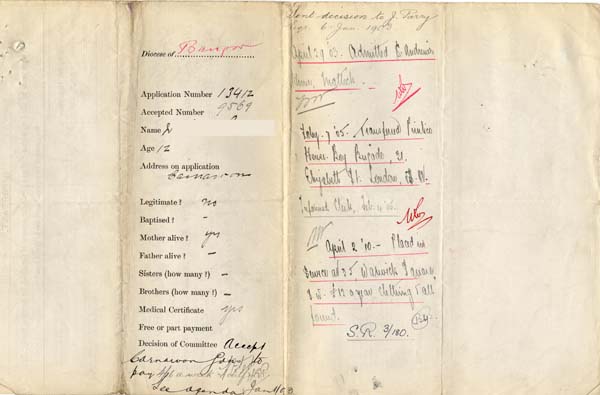 Diocese of Bangor
Application Number 13412
Accepted Number 9569
Name
Age 12
Address on application
Carnarvon
Legitimate? no
Baptised? -
Mother alive? yes
Father alive? -
Sisters (how many?) -
Brothers (how many?) -
Medical Certificate yes
Free or part payment
Decision of Committee Accept
Carnarvon to
pay a week
See agenda Jan
Sent decision to J. Parry
6 Jan 1903
April 29 03. Admitted S. Andrew's
Home, Mattock.
Feby. 7 '05. Transferred Pimlico
Home. Boy Brigade, 21,
Elizabeth St. London, S.W.
Informed Clerk, Feb.
April 2 '00 - Placed in
Service at 25, Warwick Square
S.W. £12 a year clothing & all
found.
S.R. 3/180.